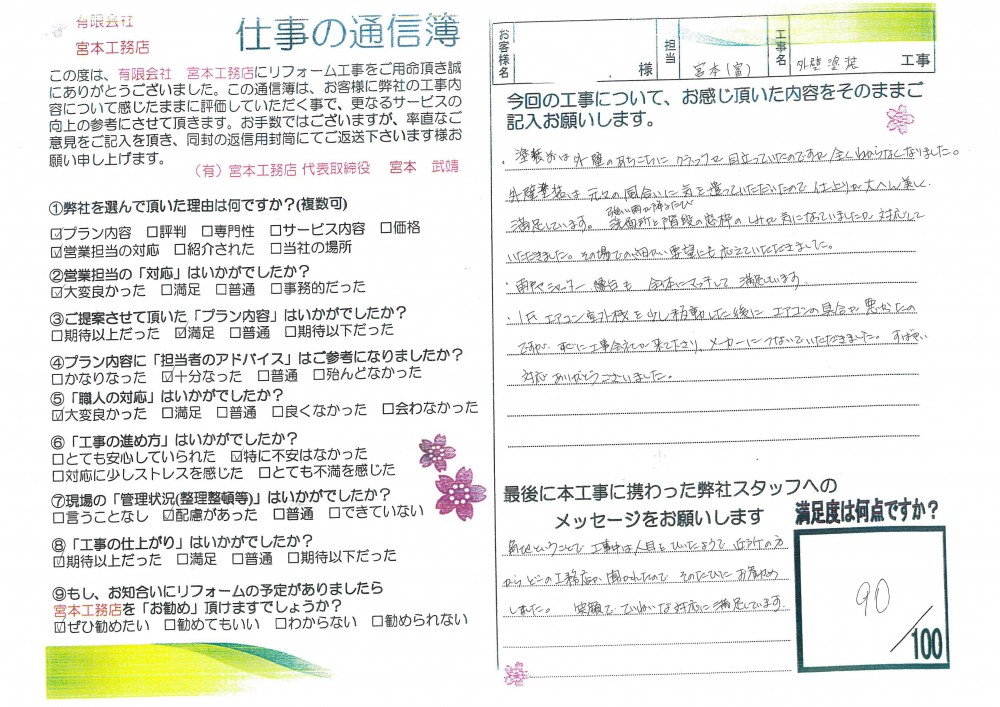 有限会社
宮本工務店
仕事の通信簿
この度は、有限会社 宮本工務店にリフォーム工事をご用命頂き誠
にありがとうございました。この通信簿は、お客様に弊社の工事内
容について感じたままに評価していただく事で、更なるサービスの
向上の参考にさせて頂きます。お手数ではございますが、率直なご
意見をご記入を頂き、同封の返信用封筒にてご返送下さいます様お
願い申し上げます。
(有)宮本工務店 代表取締役 宮本 武靖
①弊社を選んで頂いた理由は何ですか?(複数可)
☑プラン内容 □評判 □専門性 □サービス内容 □価格
☑営業担当の対応 □紹介された □当社の場所
②営業担当の「対応」はいかがでしたか?
☑大変良かった □満足 □普通 □事務的だった
③ご提案させて頂いた「プラン内容」はいかがでしたか?
□期待以上だった ☑満足 □普通 □期待以下だった
④プラン内容に「担当者のアドバイス」はご参考になりましたか?
□かなりなった ☑十分なった □普通 □殆んどなかった
⑤「職人の対応」はいかがでしたか?
☑大変良かった □満足 □普通 □良くなかった □会わなかった
⑥「工事の進め方」はいかがでしたか?
□とても安心していられた ☑特に不安はなかった
□対応に少しストレスを感じた □とても不満を感じた
⑦現場の「管理状況(整理整頓等)」はいかがでしたか?
□言うことなし ☑配慮があった □普通 □できていない
⑧「工事の仕上がり」はいかがでしたか?
☑期待以上だった □満足 □普通 □期待以下だった
⑨もし、お知合いにリフォームの予定がありましたら
宮本工務店を「お勧め」頂けますでしょうか?
☑ぜひ勧めたい □勧めてもいい □わからない □勧められない
お客様名 様 担当 宮本(富) 工事名 外壁塗装 工事
今回の工事について、お感じ頂いた内容をそのままご
記入お願いします。
・塗装前は外壁のあちこちにクラックが目立っていたのですが全くわからなくなりました。
外壁塗装は元々の風合いに気を遣っていただいたので仕上りが大へん美しく、
満足しています。強い雨が降るたび洗面所と階段の窓枠のしみが気になっていましたが対応して
いただきました。その場での細かい要望にも応えていただきました。
・雨戸やシャッター 縁台も 全体にマッチして 満足しています。
・1F エアコン室外機を少し移動した後に エアコンの具合が悪かったの
ですが、すぐに工事会社が来て下さり、メーカーにつないでいただきました。すばやい
対応ありがとうございました。
最後に本工事に携わった弊社スタッフへの
メッセージをお願いします
角地ということで 工事中は人目をひいたようで 近所の方
からどこの工務店か聞かれたので そのたびにお薦め
しました。 笑顔で ていねいな対応に満足しています。
満足度は何点ですか?
90
/100